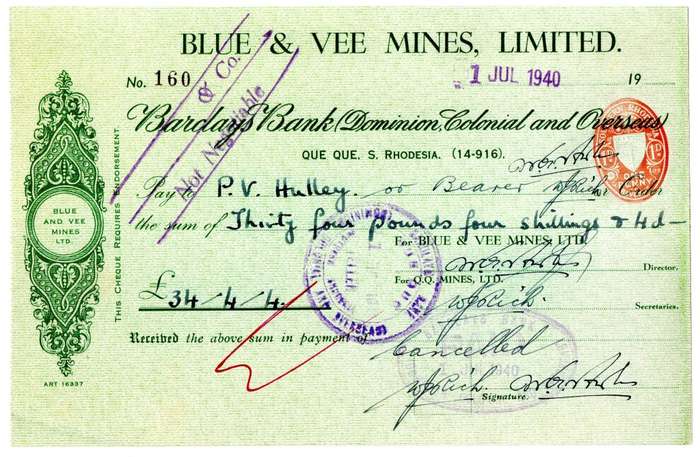 BLUE & VEE MINES, LIMITED.
No. 160
& Co.
Not Negotiable
1 JUL 1940
19
Barclays Bank (Dominion, Colonial and Overseas)
QUE QUE, S. RHODESIA. (14-916).
Pay to P. V. Hulley. or Bearer or Order
the sum of Thirty four pounds four shillings & 4d
For BLUE & VEE MINES, LTD.
Director.
For Q.Q. MINES, LTD.
£34/4/4.
W J Rich.
Secretaries.
Received the above sum in payment of
Cancelled
W J Rich.
Signature.
THIS CHEQUE REQUIRES ENDORSEMENT.
BLUE
AND VEE
MINES
LTD.
ART 16337
1D